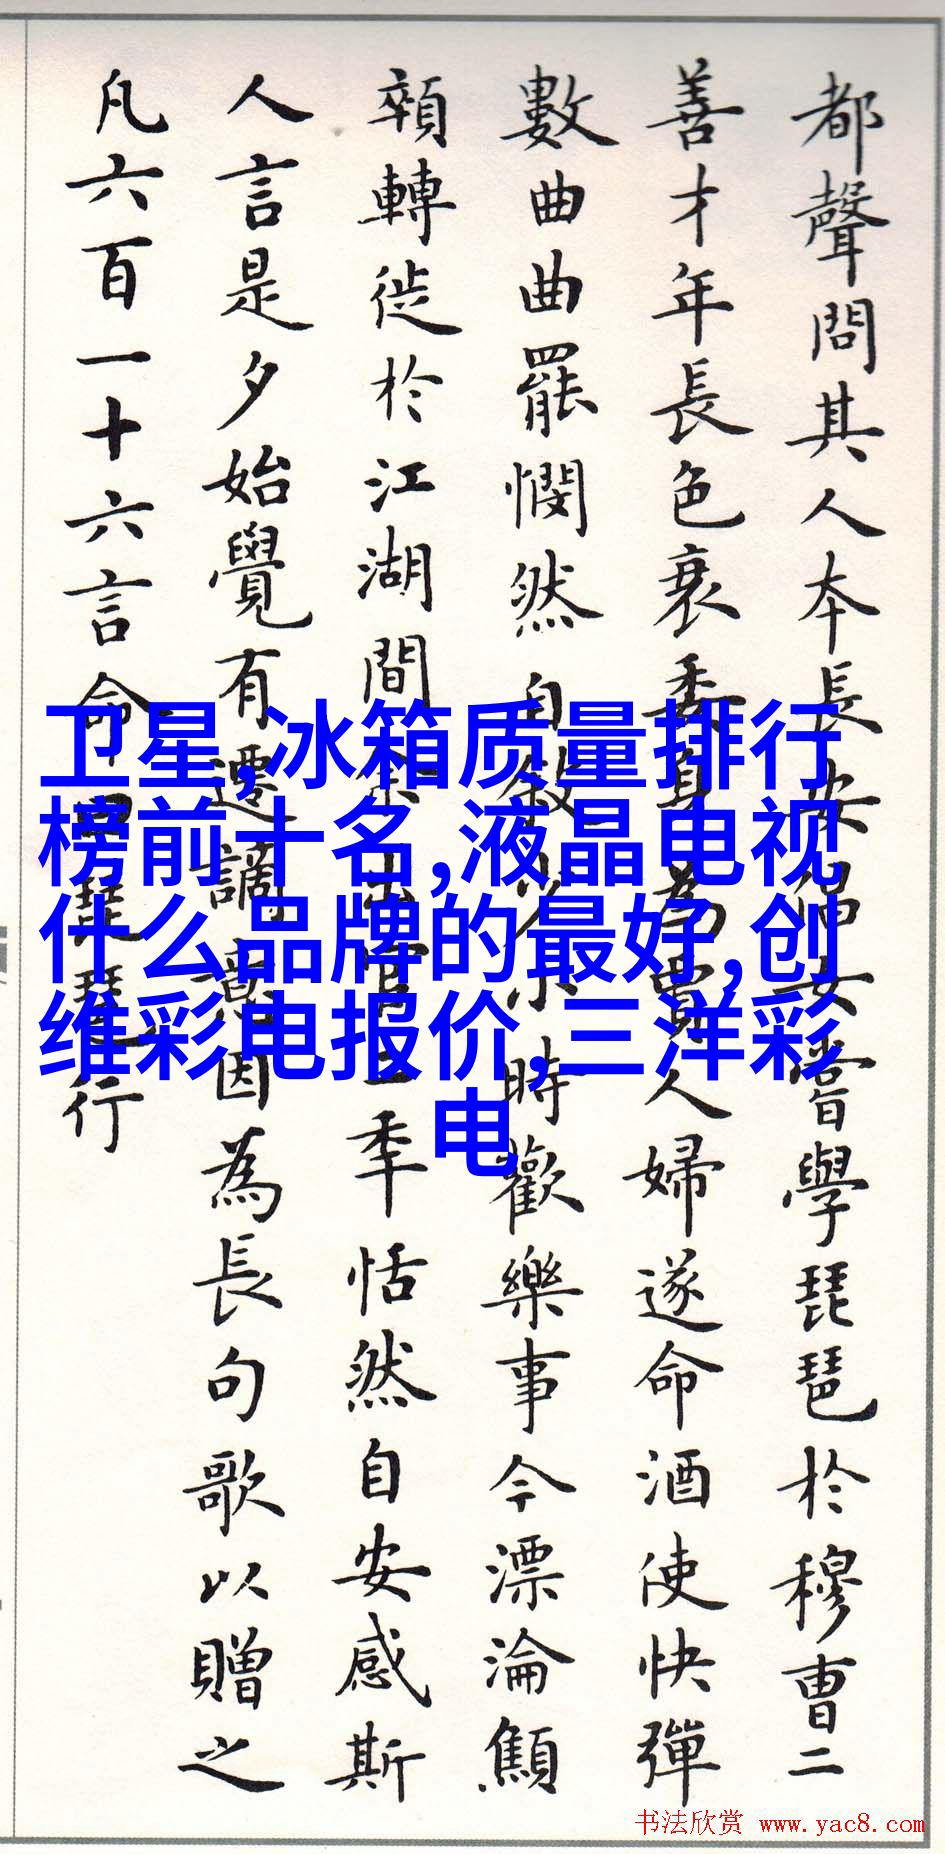 都聲問其人本長安倡女嘗學琵琶於穆曹二
善才年長色衰委身為賈人婦遂命酒使快彈
數曲曲罷憫然自敘少小時歡樂事今漂淪顦
顇轉徙於江湖間余出官二秊恬然自安感斯
人言是夕始覺有遷謫意因為長句歌以贈之
凡六百一十六言命曰琵琶行
卫星,冰箱质量排行
榜前十名,液晶电视
什么品牌的最好,创
维彩电报价,三洋彩
电
书法欣赏 www.yac8.com